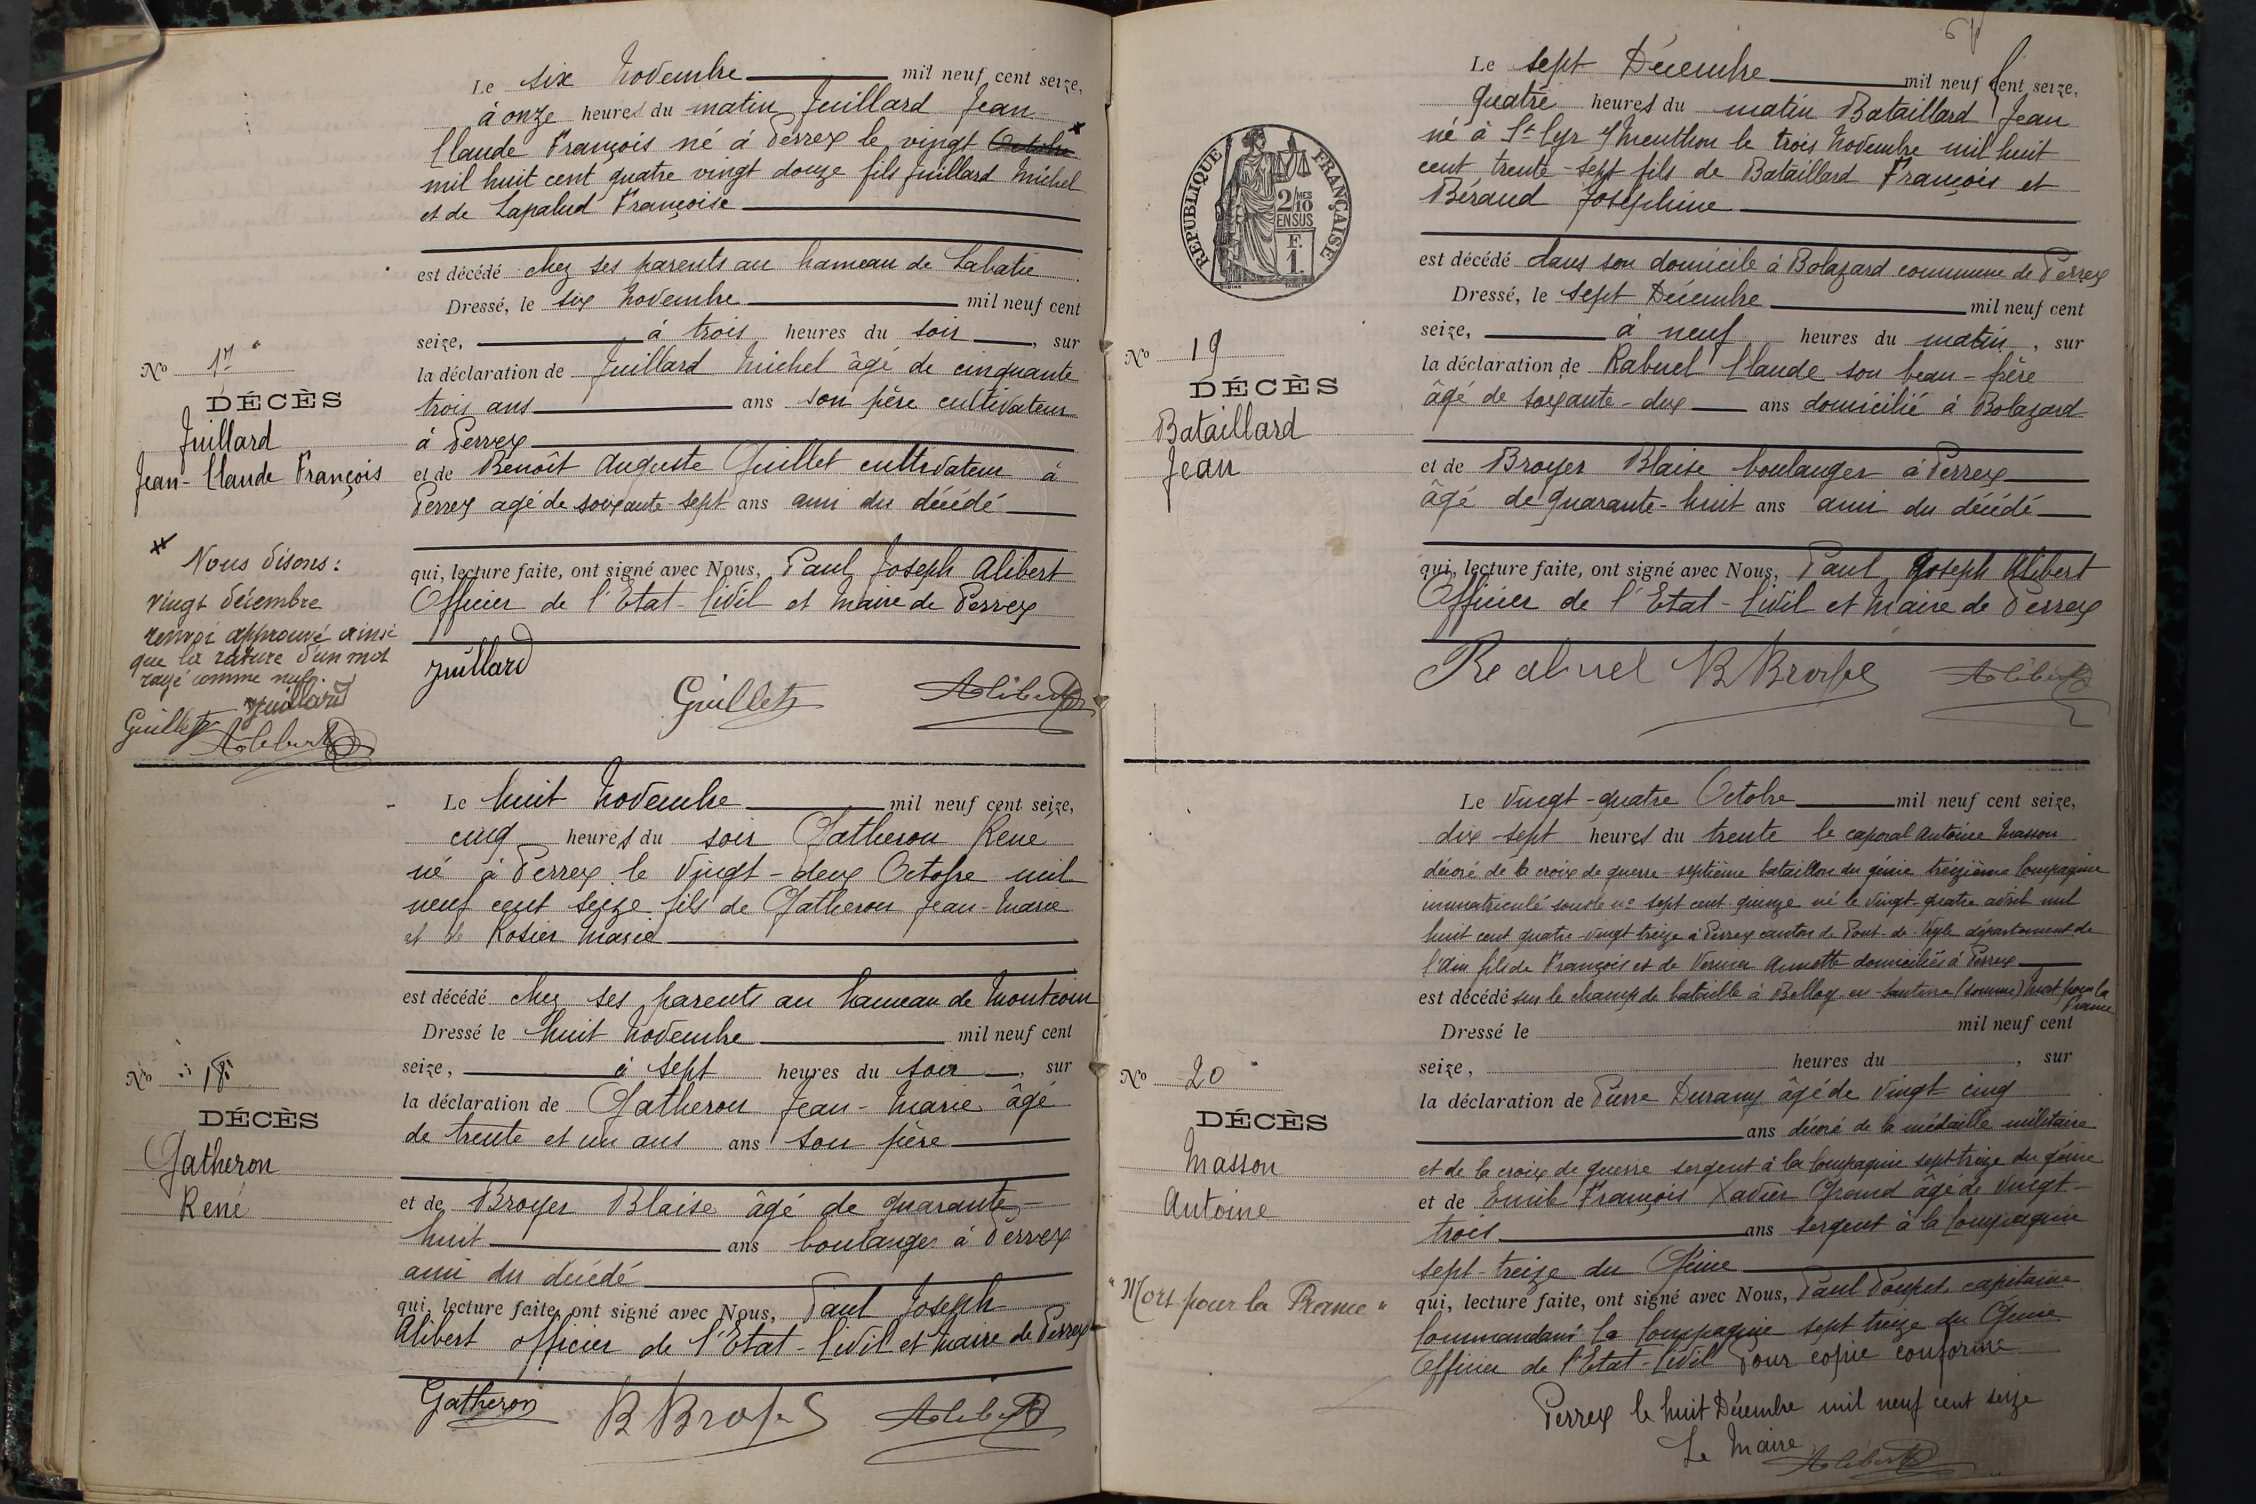 Le six Novembre mil neuf cent seize,
à onze heures du matin Juillard Jean
Claude François né à Perrex le vingt Octobre
mil huit cent quatre vingt douze fils Juillard Michel
et de Lapalud Françoise
est décédé chez ses parents au hameau de Labatie
Dressé, le six Novembre mil neuf cent
seize, à trois heures du soir, sur
la déclaration de Juillard Michel âgé de cinquante
trois ans ans son père cultivateur
à Perrex
et de Benoît Auguste Guillet cultivateur à
Perrex agé de soixante-sept ans ami du décédé
qui, lecture faite, ont signé avec Nous, Paul Joseph Alibert
Officier de l'Etat-Civil et Maire de Perrex
Juillard
Guillet
Alibert
No 17
DÉCÈS
Juillard
Jean-Claude François
Nous disons:
vingt décembre
renvoi approuvé ainsi
que la rature d'un mot
rayé comme nul.
Juillard
Guillet
Alibert
Le huit Novembre mil neuf cent seize,
cinq heures du soir Gatheron René
né à Perrex le vingt-deux Octobre mil
neuf cent seize fils de Gatheron Jean-Marie
et de Rosier Marie
est décédé chez ses parents au hameau de Montcoin
Dressé le huit Novembre mil neuf cent
seize, à sept heures du soir, sur
la déclaration de Gatheron Jean-Marie âgé
de trente et un ans ans son père
et de Broyer Blaise âgé de quarante-
huit ans boulanger à Perrex
ami du décédé
qui, lecture faite, ont signé avec Nous, Paul Joseph
Alibert officier de l'Etat-Civil et Maire de Perrex
Gatheron
B Broyer
Alibert
No 18
DÉCÈS
Gatheron
René
Le sept Décembre mil neuf cent seize,
quatre heures du matin Bataillard Jean
né à St Cyr s/ Menthon le trois Novembre mil huit
cent trente-sept fils de Bataillard François et
Béraud Joséphine
est décédé dans son domicile à Bolazard commune de Perrex
Dressé, le sept Décembre mil neuf cent
seize, à neuf heures du matin, sur
la déclaration de Rabuel Claude son beau-frère
âgé de soixante-deux ans domicilié à Bolazard
et de Broyer Blaise boulanger à Perrex
âgé de quarante-huit ans ami du décédé
qui, lecture faite, ont signé avec Nous, Paul Joseph Alibert
Officier de l'Etat-Civil et Maire de Perrex
Rabuel
B Broyer
Alibert
RÉPUBLIQUE FRANÇAISE
2/10 EN SUS
F. 1.
No 19
DÉCÈS
Bataillard
Jean
Le vingt-quatre Octobre mil neuf cent seize,
dix-sept heures du trente le caporal Antoine Masson
décoré de la croix de guerre septième bataillon du génie treizième Compagnie
immatriculé sous le no sept cent quinze né le vingt-quatre avril mil
huit cent quatre-vingt treize à Perrex canton de Pont-de-Veyle département de
l'Ain fils de François et de Vernier Annette domiciliés à Perrex
est décédé sur le champ de bataille à Belloy-en-Santerre (Somme) mort pour la
France
Dressé le mil neuf cent
seize, heures du, sur
la déclaration de Pierre Durany âgé de vingt cinq
ans décoré de la médaille militaire
et de la croix de guerre sergent à la Compagnie sept-treize du génie
et de Emile François Xavier Grand âgé de vingt-
trois ans sergent à la Compagnie
sept-treize du Génie
qui, lecture faite, ont signé avec Nous, Paul Poupet capitaine
Commandant la Compagnie sept treize du Génie
Officier de l'Etat-Civil Pour copie conforme
Perrex le huit Décembre mil neuf cent seize
Le Maire
Alibert
No 20
DÉCÈS
Masson
Antoine
"Mort pour la France"